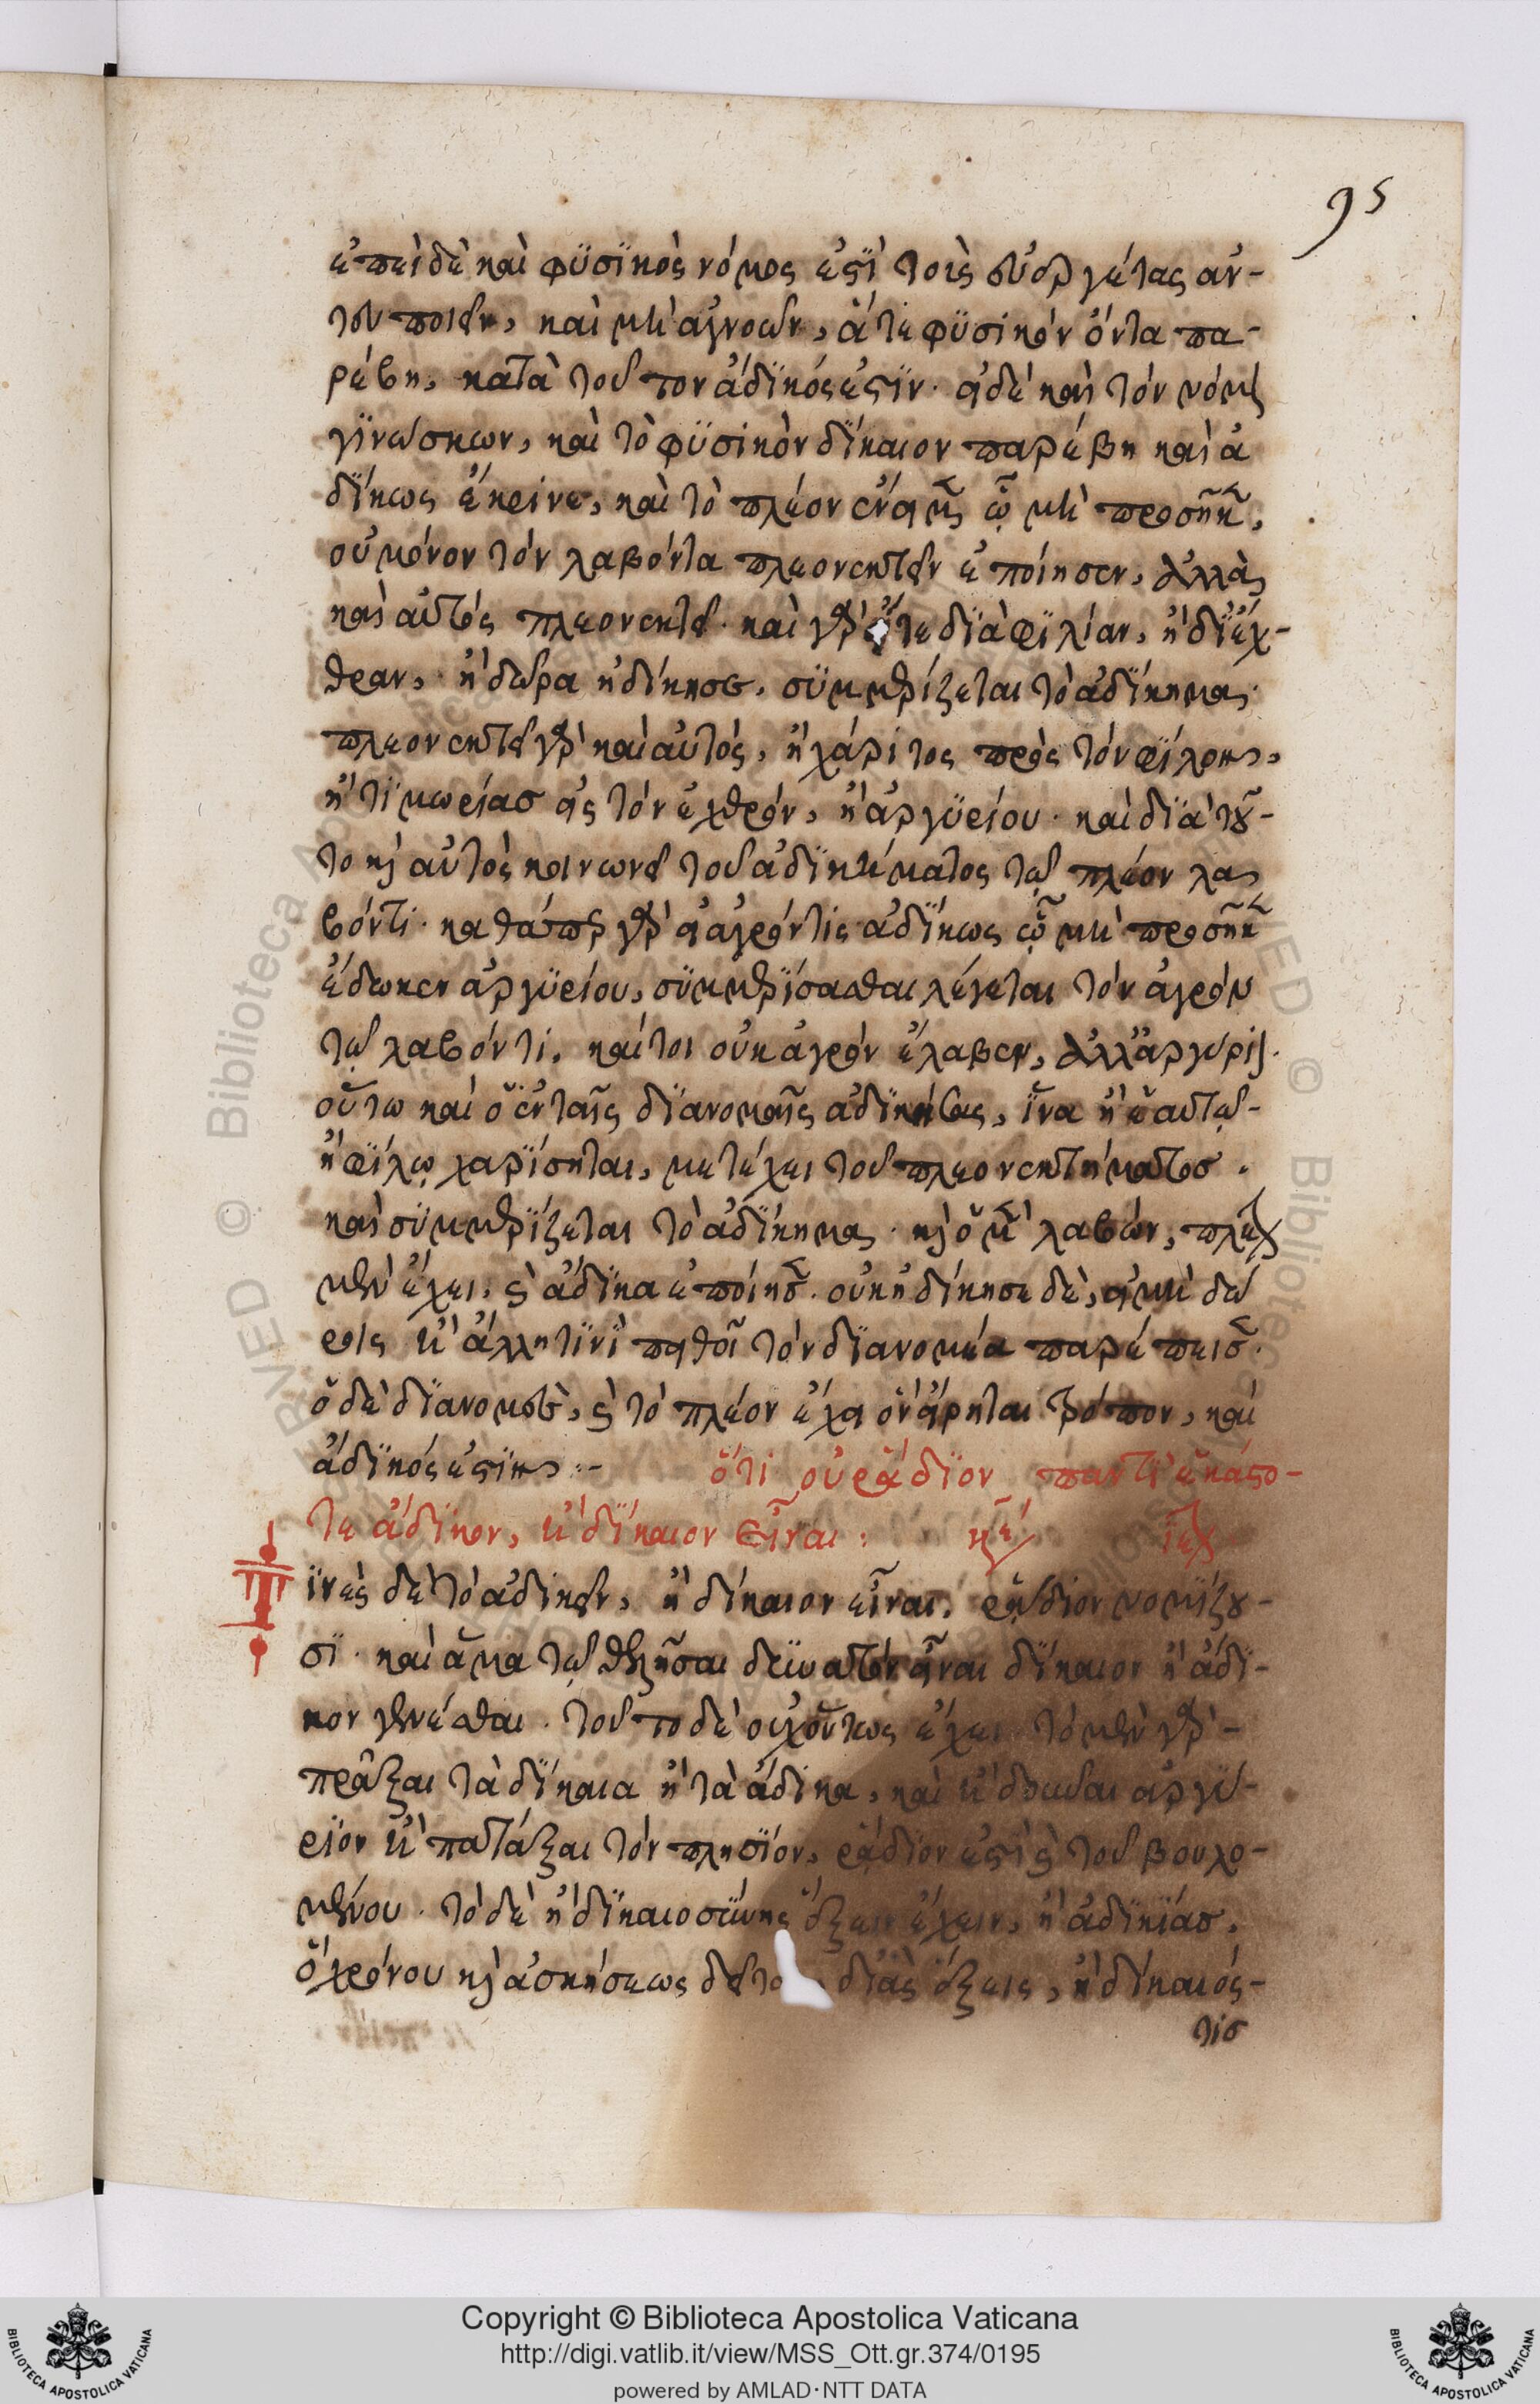 95
ἐπεὶ δὲ καὶ φϋσϊκὸς νόμος ἐστῒ τοὺς εὐεργέτας αν-
τευποιεῖν, καὶ μὴ ἀγνοῶν, ἅτε φϋσικὸν ὄντα πα-
ρέβη, κατὰ τοῦτον ἄδϊκός ἐστϊν. εἰ δὲ καὶ τὸν νόμον
γϊνώσκων, καὶ τὸ φϋσικὸν δΐκαιον παρέβη καὶ ἀ
δΐκως ἔκρινε, καὶ τὸ πλέον ἔνειμεν ᾧ μὴ προσῆκε,
οὐ μόνον τὸν λαβόντα πλεονεκτεῖν ἐποίησεν, ἀλλὰ
καὶ αὐτὸς πλεονεκτεῖ. καὶ γὰρ εἴτε δϊὰ φϊλίαν, ἢ δϊ' ἔχ-
θραν, ἢ δῶρα ἠδίκησε, συμμερίζεται τὸ ἀδΐκημα.
πλεονεκτεῖ γὰρ καὶ αὐτὸς, ἢ χάριτος πρὸς τὸν φΐλον,
ἢ τϊμωρίασ εἰς τὸν ἐχθρόν, ἢ ἀργϋρίου. καὶ δϊὰ τοῦ-
το καὶ αὐτὸς κοινωνεῖ τοῦ ἀδϊκήματος τῷ πλέον λα
βόντι. καθάπερ γὰρ εἰ ἀγρόν τις ἀδΐκως ᾧ μὴ προσῆκεν
ἔδωκεν ἀργϋρίου, συμμερΐσασθαι λέγεται τὸν ἀγρὸν
τῷ λαβόντι, καίτοι οὐκ ἀγρὸν ἔλαβεν, ἀλλ' ἀργύριον.
οὕτω καὶ ὁ ἐν ταῖς δϊανομαῖς ἀδϊκήσας, ἵνα ἢ ἑαυτῷ
ἢ φΐλῳ χαρΐσηται, μετέχει τοῦ πλεονεκτήματοσ.
καὶ συμμερΐζεται τὸ ἀδΐκημα. καὶ ὁ μὲν λαβὼν, πλέον
μὲν ἔχει, καὶ ἄδϊκα ἐποίησεν. οὐκ ἠδίκησε δὲ, εἰ μὴ δώ
ροις ἢ ἄλλη τϊνῒ πειθοῖ τὸν δϊανομέα παρέπεισεν.
ὁ δὲ δϊανομεὺς, καὶ τὸ πλέον ἔχει ὃν εἴρηται τρόπον, καὶ
ἄδϊκός ἐστϊν :- ὅτι οὐ ῥᾴδϊον παντῒ ἑκάστο-
τε ἄδικον, ἢ δΐκαιον εἶναι : κεφ
ϊνὲς δὲ τὸ ἀδικεῖν, ἢ δίκαιον εἶναι, ῥᾴδιον νομΐζου-
σϊ. καὶ ἅμα τῷ θελῆσαι δεινατὸν εἶναι δΐκαιον ἢ ἄδϊ-
κον γενέσθαι. τοῦτο δὲ οὐχ οὕτως ἔχει. τὸ μὲν γὰρ
πρᾶξαι τὰ δΐκαια ἢ τὰ ἄδικα, καὶ ἢ δοῦναι ἀργΰ-
ρϊον ἢ πατάξαι τὸν πλησΐον, ῥᾴδϊόν ἐστι καὶ τοῦ βουλο-
μένου. τὸ δὲ ἢ δϊκαιοσΰνης ἕξιν ἔχειν, ἢ ἀδϊκΐασ,
ὃ χρόνου καὶ ἀσκήσεως δεῖτ δϊὰς ἕξεις, ἢ δίκαιός-
τισ
Copyright © Biblioteca Apostolica Vaticana
http://digi.vatlib.it/view/MSS_Ott.gr.374/0195
powered by AMLAD·NTT DATA